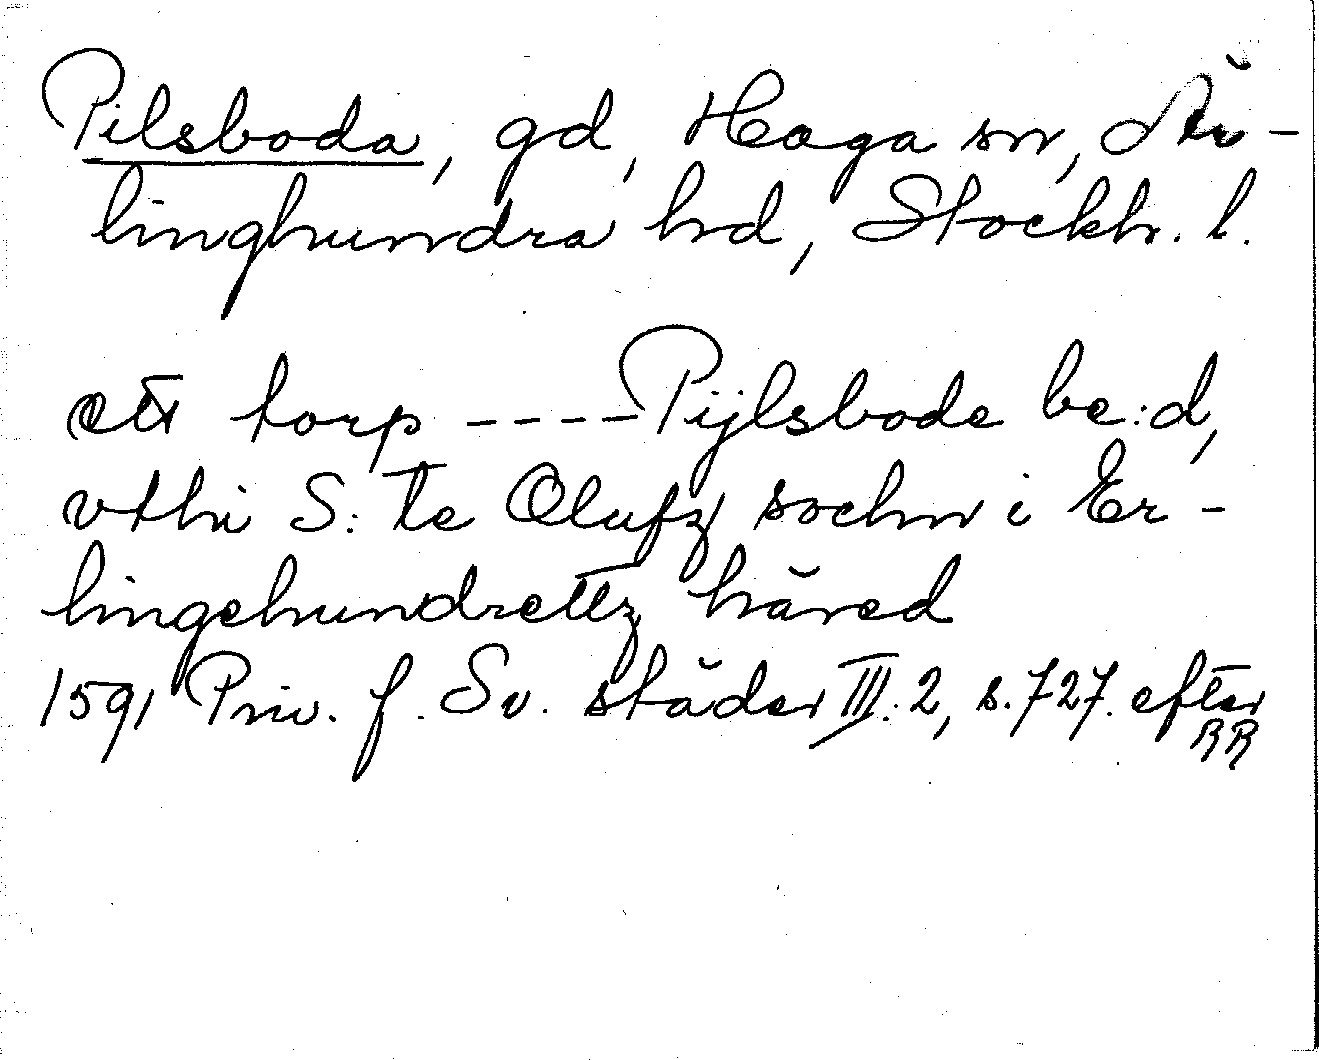 Pilsboda, gd, Haga sn, Är-
linghundra hd, Stockh. l.
ett torp ----Pijlsbode be:d,
vthi S: te Olufz sochn i Er-
lingehundrettz häred
1591 Priv. f. Sv. städer III:2, s.727. efter
RR